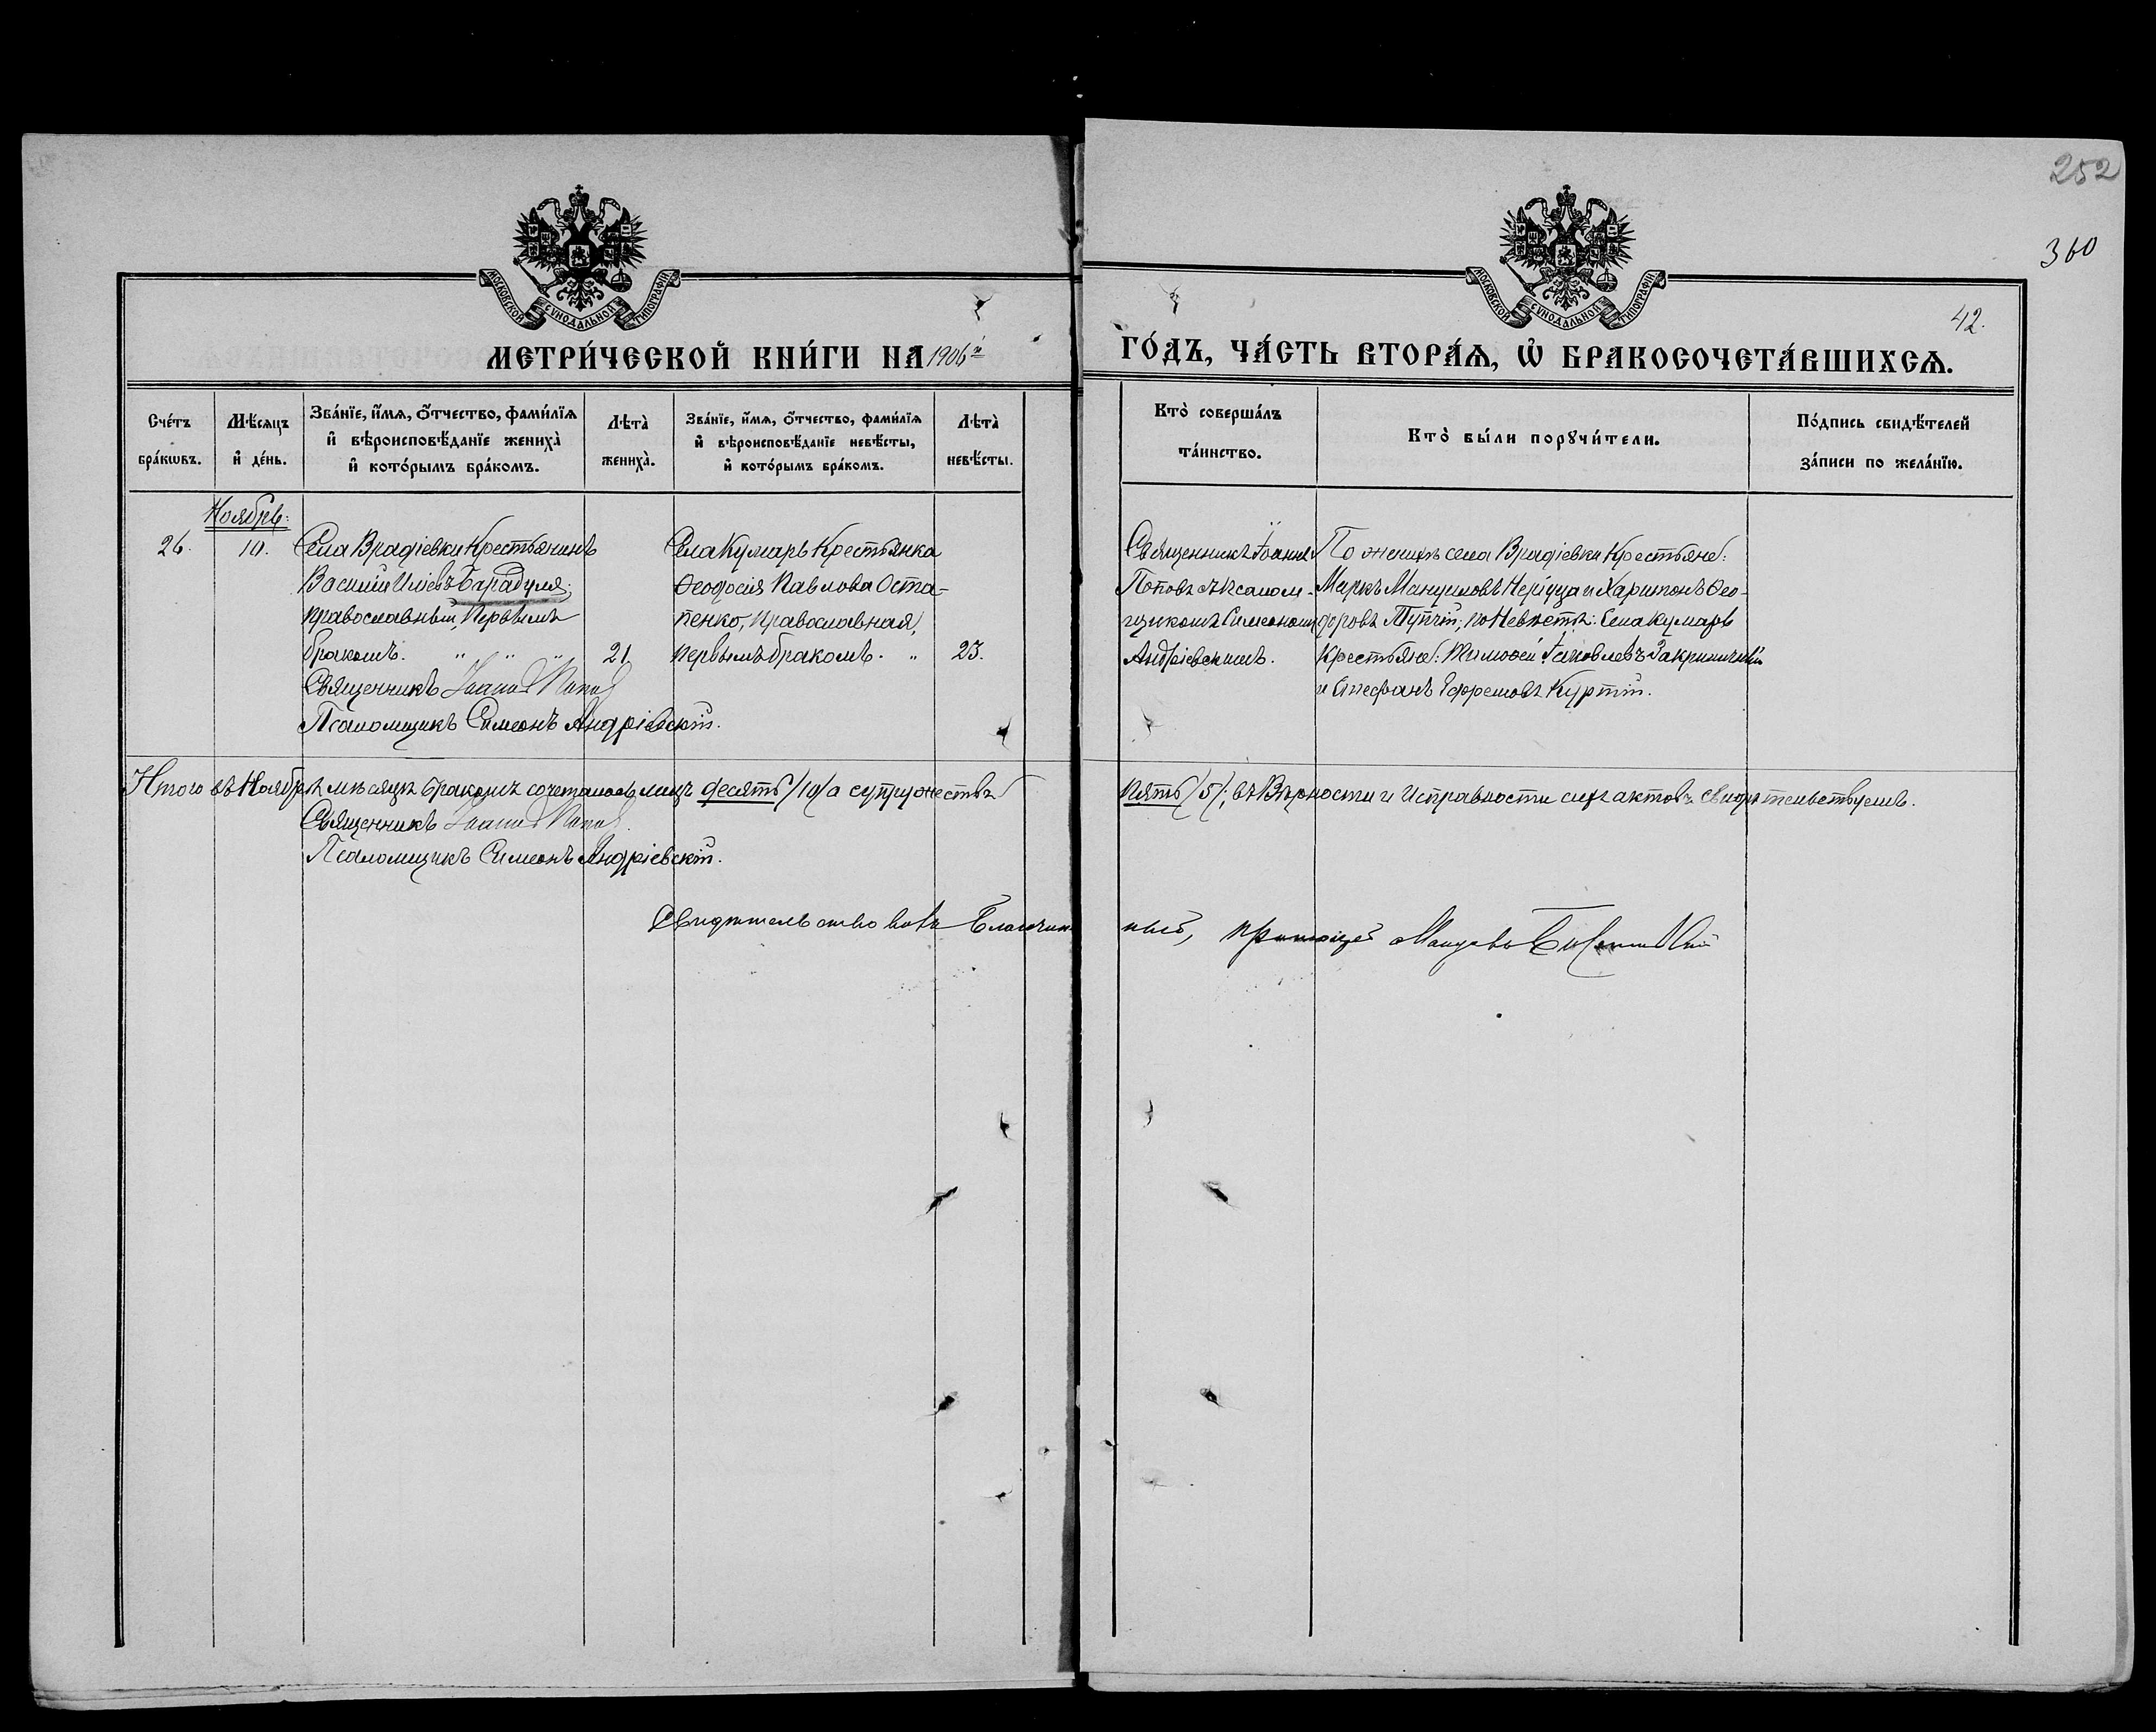 252
360
42.
МОСКОВСКОЙ СѴНОДАЛЬНОЙ ТИПОГРАФІИ
МОСКОВСКОЙ СѴНОДАЛЬНОЙ ТИПОГРАФІИ
МЕТРИ́ЧЕСКОЙ КНИ́ГИ НА 1906й ГО́ДЪ, ЧА́СТЬ ВТОРА́Ѧ, Ѽ БРАКОСОЧЕТА́ВШИХСѦ.
Сче́тъ
бра́кωвъ.
Мѣ́сяцъ
и҆ де́нь.
Зва́нїе, и҆́мѧ, ѻ҆́тчество, фами́лїѧ
и҆ вѣроисповѣ́данїе жениха̀
и҆ кото́рымъ бра́комъ.
Лѣта̀
жениха̀.
Зва́нїе, и҆́мѧ, ѻ҆́тчество, фами́лїѧ
и҆ вѣроисповѣ́данїе невѣ́сты,
и҆ кото́рымъ бра́комъ.
Лѣта̀
невѣ́сты.
Кто̀ соверша́лъ
та́инство.
Кто̀ бы́ли порꙋчи́тели.
По́дпись свидѣ́телей
за́писи по жела́нїю.
Ноябрь:
26.
10.
Села Врадіевки Крестьянинъ
Василій Иліевъ Барабуля,
Православный, Первымъ
бракомъ. " " "
21.
Священникъ Іоаннъ Поповъ
Псаломщикъ Симеонъ Андріевскій.
Села Кумаръ Крестьянка
Ѳеодосія Павлова Оста-
пенко, Православная,
первымъ бракомъ. "
23.
Священникъ Іоаннъ
Поповъ съ Псалом-
щикомъ Симеономъ
Андріевскимъ.
По женихѣ села Врадіевки Крестьяне:
Маркъ Мануиловъ и Харитонъ Ѳео-
доровъ Тупчій, по Невѣстѣ: Села Кумаръ
Крестьяне: Тимоѳей Іаковлевъ Закриничный
и Стефанъ Ефремовъ Куртій.
Итого въ Ноябрѣ мѣсяцѣ бракомъ сочеталось лицъ десять /10/ а супружествъ пять /5/; въ Вѣрности и Исправности сихъ актовъ свидѣтельствуемъ.
Священникъ Іоаннъ Поповъ
Псаломщикъ Симеонъ Андріевскій.
Свидѣтельствовалъ Благочинный,